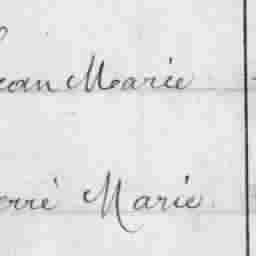 ean Marie
erre Marie